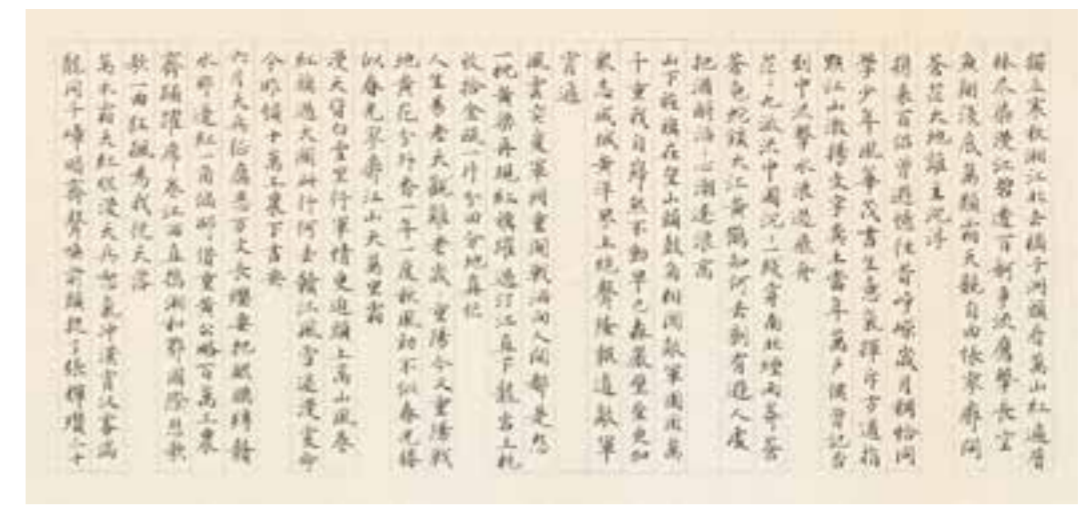 獨立寒秋湘江北去橘子洲頭看萬山紅遍層
林盡染漫江碧透百舸爭流鷹擊長空
魚翔淺底萬類霜天競自由悵寥廓問
蒼茫大地誰主沉浮
攜來百侶曾遊憶往昔崢嶸歲月稠恰同
學少年風華茂書生意氣揮斥方遒指
點江山激揚文字糞土當年萬戶侯曾記否
到中流擊水浪遏飛舟
茫〻九派流中國沉〻一線穿南北煙雨莽蒼
蒼龜蛇鎖大江黃鶴知何去剩有遊人處
把酒酹滔〻心潮逐浪高
山下旌旗在望山頭鼓角相聞敵軍圍困萬
千重我自巋然不動早已森嚴壁壘更加
衆志成城黃洋界上炮聲隆報道敵軍
宵遁
風雲突變軍閥重開戰洒向人間都是怨
一枕黃粱再現紅旗躍過汀江直下龍岩上杭
收拾金甌一片分田分地真忙
人生易老天難老歲〻重陽今又重陽戰
地黃花分外香一年一度秋風勁不似春光勝
似春光寥廓江山天萬里霜
漫天皆白雪裏行軍情更迫頭上高山風卷
紅旗過大關此行何去贛江風雪迷漫處命
令昨頒十萬工農下吉安
六月天兵征腐惡萬丈長纓要把鯤鵬縛贛
水那邊紅一角偏師借重黃公略百萬工農
齊踴躍席卷江西直搗湘和鄂國際悲歌
歌一曲狂飆為我從天落
萬木霜天紅爛漫天兵怒氣沖漢霄漢霧滿
龍岡千嶂暗齊聲喚前頭捉了張輝瓚二十